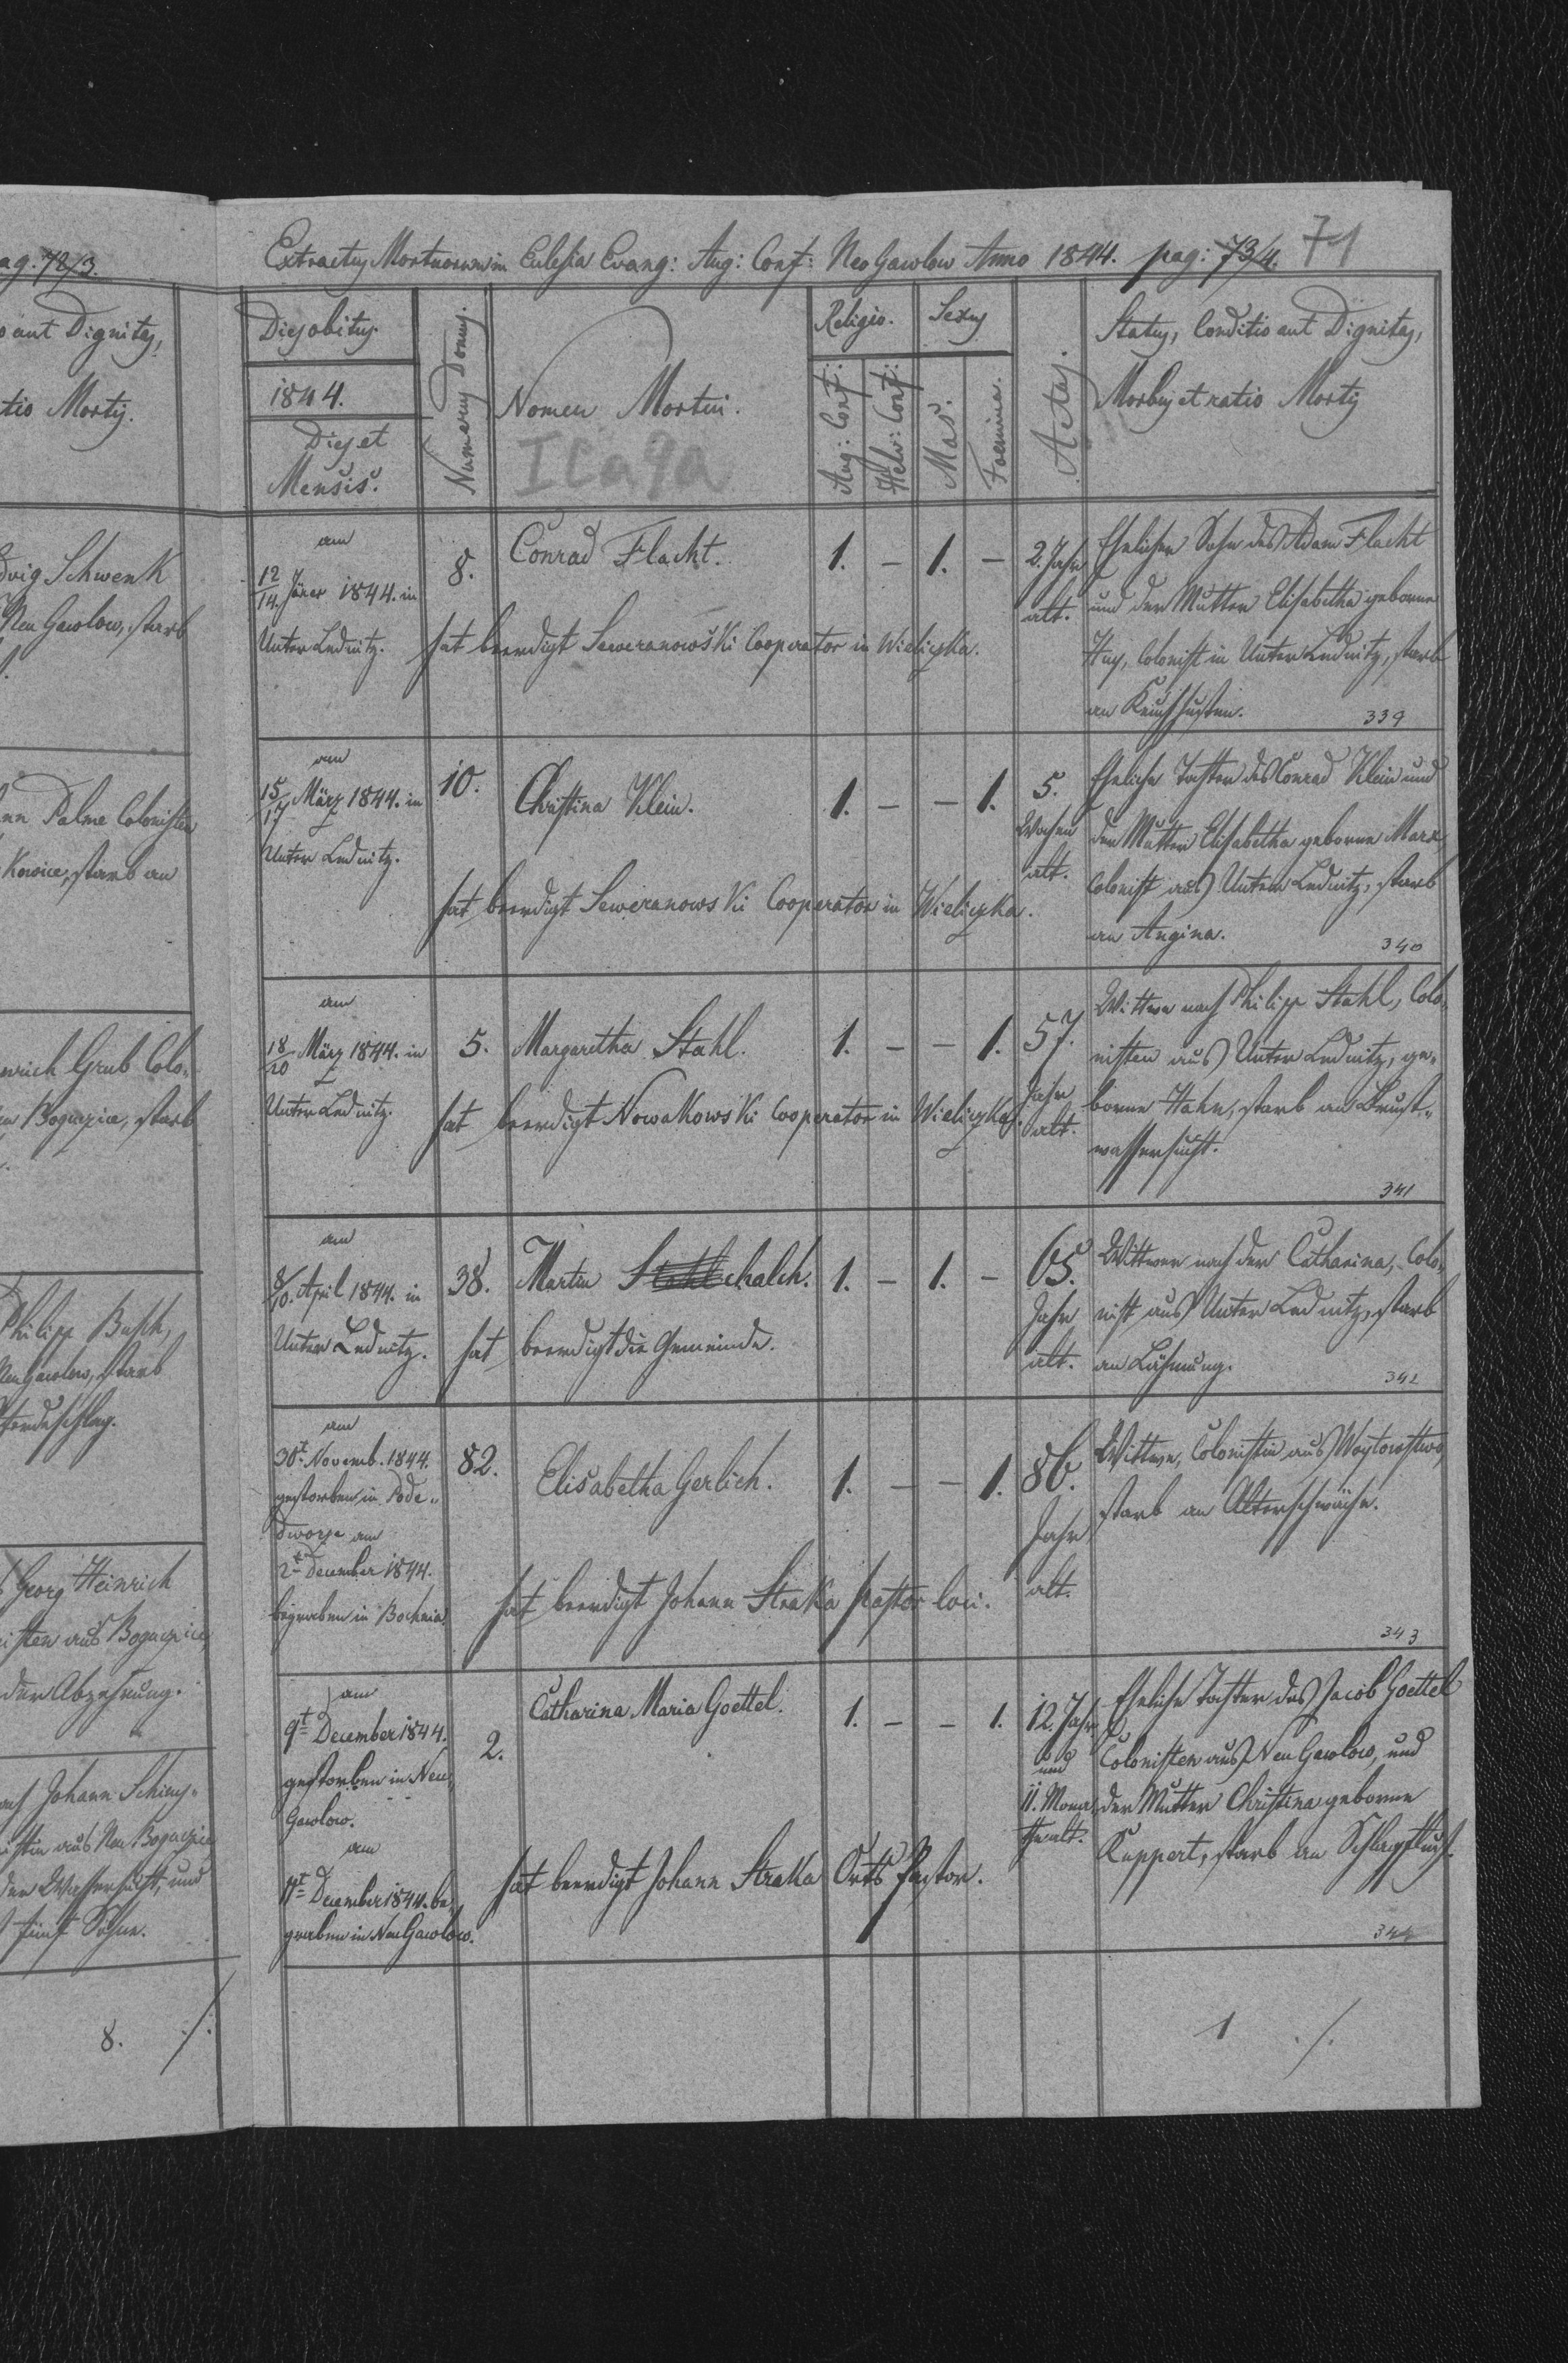 ag. 72/3.
o aut Dignitas,
tio Mortis.
dvig Schwenk
Neu Gawlow, starb
nn Palme Colonisten
Kowice, starb an
nrich Grub Colo-
Boguczice, starb
Philipp Busch,
Neu Gawlow, starb
Georg Heinrich
isten aus Boguczice,
der Abzehrung.
ach Johann Schmy-
istin aus Neu Boguczice
der Wassersucht, und
fünf Söhne.
8. ./.
Extractus Mortuorum in Eclesia Evang: Aug: Conf: Neo Gawlow Anno 1844. pag: 73/4. 71
Dies obitus.
1844.
Dies et
Mensis.
Numerus Domus.
Nomen Mortui.
ICa9a
Religio.
Aug: Conf:
Helv: Conf:
Sexus
Mas.
Foemina.
Aetas.
Status, Conditio aut Dignitas,
Morbus et ratio Mortis
am
12/14. Jäner 1844. in
Unter Lednitz.
8.
Conrad Flacht.
hat beerdigt Seweranowski Cooperator in Wieliczka.
1. — 1. —
2. Jahr
alt.
Ehelicher Sohn des Adam Flacht
und der Mutter Elisabetha geborne
Huy, Colonist in Unter Lednitz, starb
an Keuchhusten.
339
am
15/17 März 1844. in
Unter Lednitz.
10.
Christina Klein.
hat beerdigt Seweranowski Cooperator in Wieliczka.
1. — — 1.
5.
Wochen
alt.
Eheliche Tochter des Conrad Klein und
der Mutter Elisabetha geborne Marx
Colonist aus Unter Lednitz, starb
an Angina.
340
am
18/20 März 1844. in
Unter Lednitz.
5.
Margaretha Stahl.
hat beerdigt Nowakowski Cooperator in Wieliczka.
1. — — 1.
57.
Jahr
alt.
Wittwe nach Philipp Stahl, Colo-
nisten aus Unter Lednitz, ge-
borne Hahn, starb an Brust-
wassersucht.
341
am
8/10. April 1844. in
Unter Lednitz.
38.
Martin Stahl chalch.
hat beerdigt die Gemeinde.
1. — 1. —
65.
Jahr
alt.
Wittwer nach der Catharina, Colo-
nist aus Unter Lednitz, starb
an Lähmung.
342
am
30t Novemb. 1844.
gestorben in Pode-
dworze am
2t December 1844.
begraben in Bochnia.
82.
Elisabetha Gerlich.
hat beerdigt Johann Straka Pastor loci.
1. — — 1.
86.
Jahr
alt.
Wittwe, Colonistin aus Woytowstwo,
starb an Alterschwäche.
343
am
9t December 1844.
gestorben in Neu
Gawlow.
am
11t December 1844. be-
graben in Neu Gawlow.
2.
Catharina Maria Goettel.
hat beerdigt Johann Straka Orts Pastor.
1. — — 1.
12. Jahr
und
11. Mona-
the alt.
Eheliche Tochter des Jacob Goettel
Colonisten aus Neu Gawlow, und
der Mutter Christina geborne
Kuppert, starb an Schlagfluß.
344
1 ./.